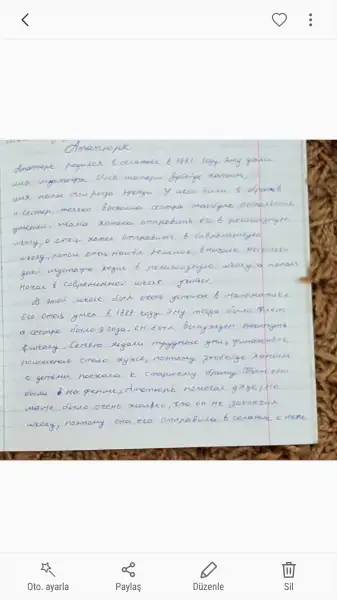 Ататюрк
Ататюрк родился в в 1881 году. Ему дали
имя Мустафа. Имя матери Зубейде ханым,
имя папы Али Риза эфенди. У него были 5 братьев
и сестер, только сестра
Мама хотела отправить его в религиозную
школу, а отец хотел отправить в современную
школу, потом отец нашёл решение, в начале несколько
дней Мустафа ходил в религиозную школу, а потом
начал в современной школе.
В этой школе был очень успешен в математике.
Его отец умер в 1888 году. Ему тогда было 7 лет
а сестре было 3 года. Он был вынужден покинуть
школу. Семью ждали трудные дни, финансовое
положение стало хуже, поэтому Зубейде ханым
с детьми поехала к старшему брату. Там они
были на ферме, Ататюрк помогал дяде, но
маме было очень жалко, что он не закончил
школу, поэтому она его отправила в к тёте
Oto. ayarla
Paylaş
Düzenle
Sil